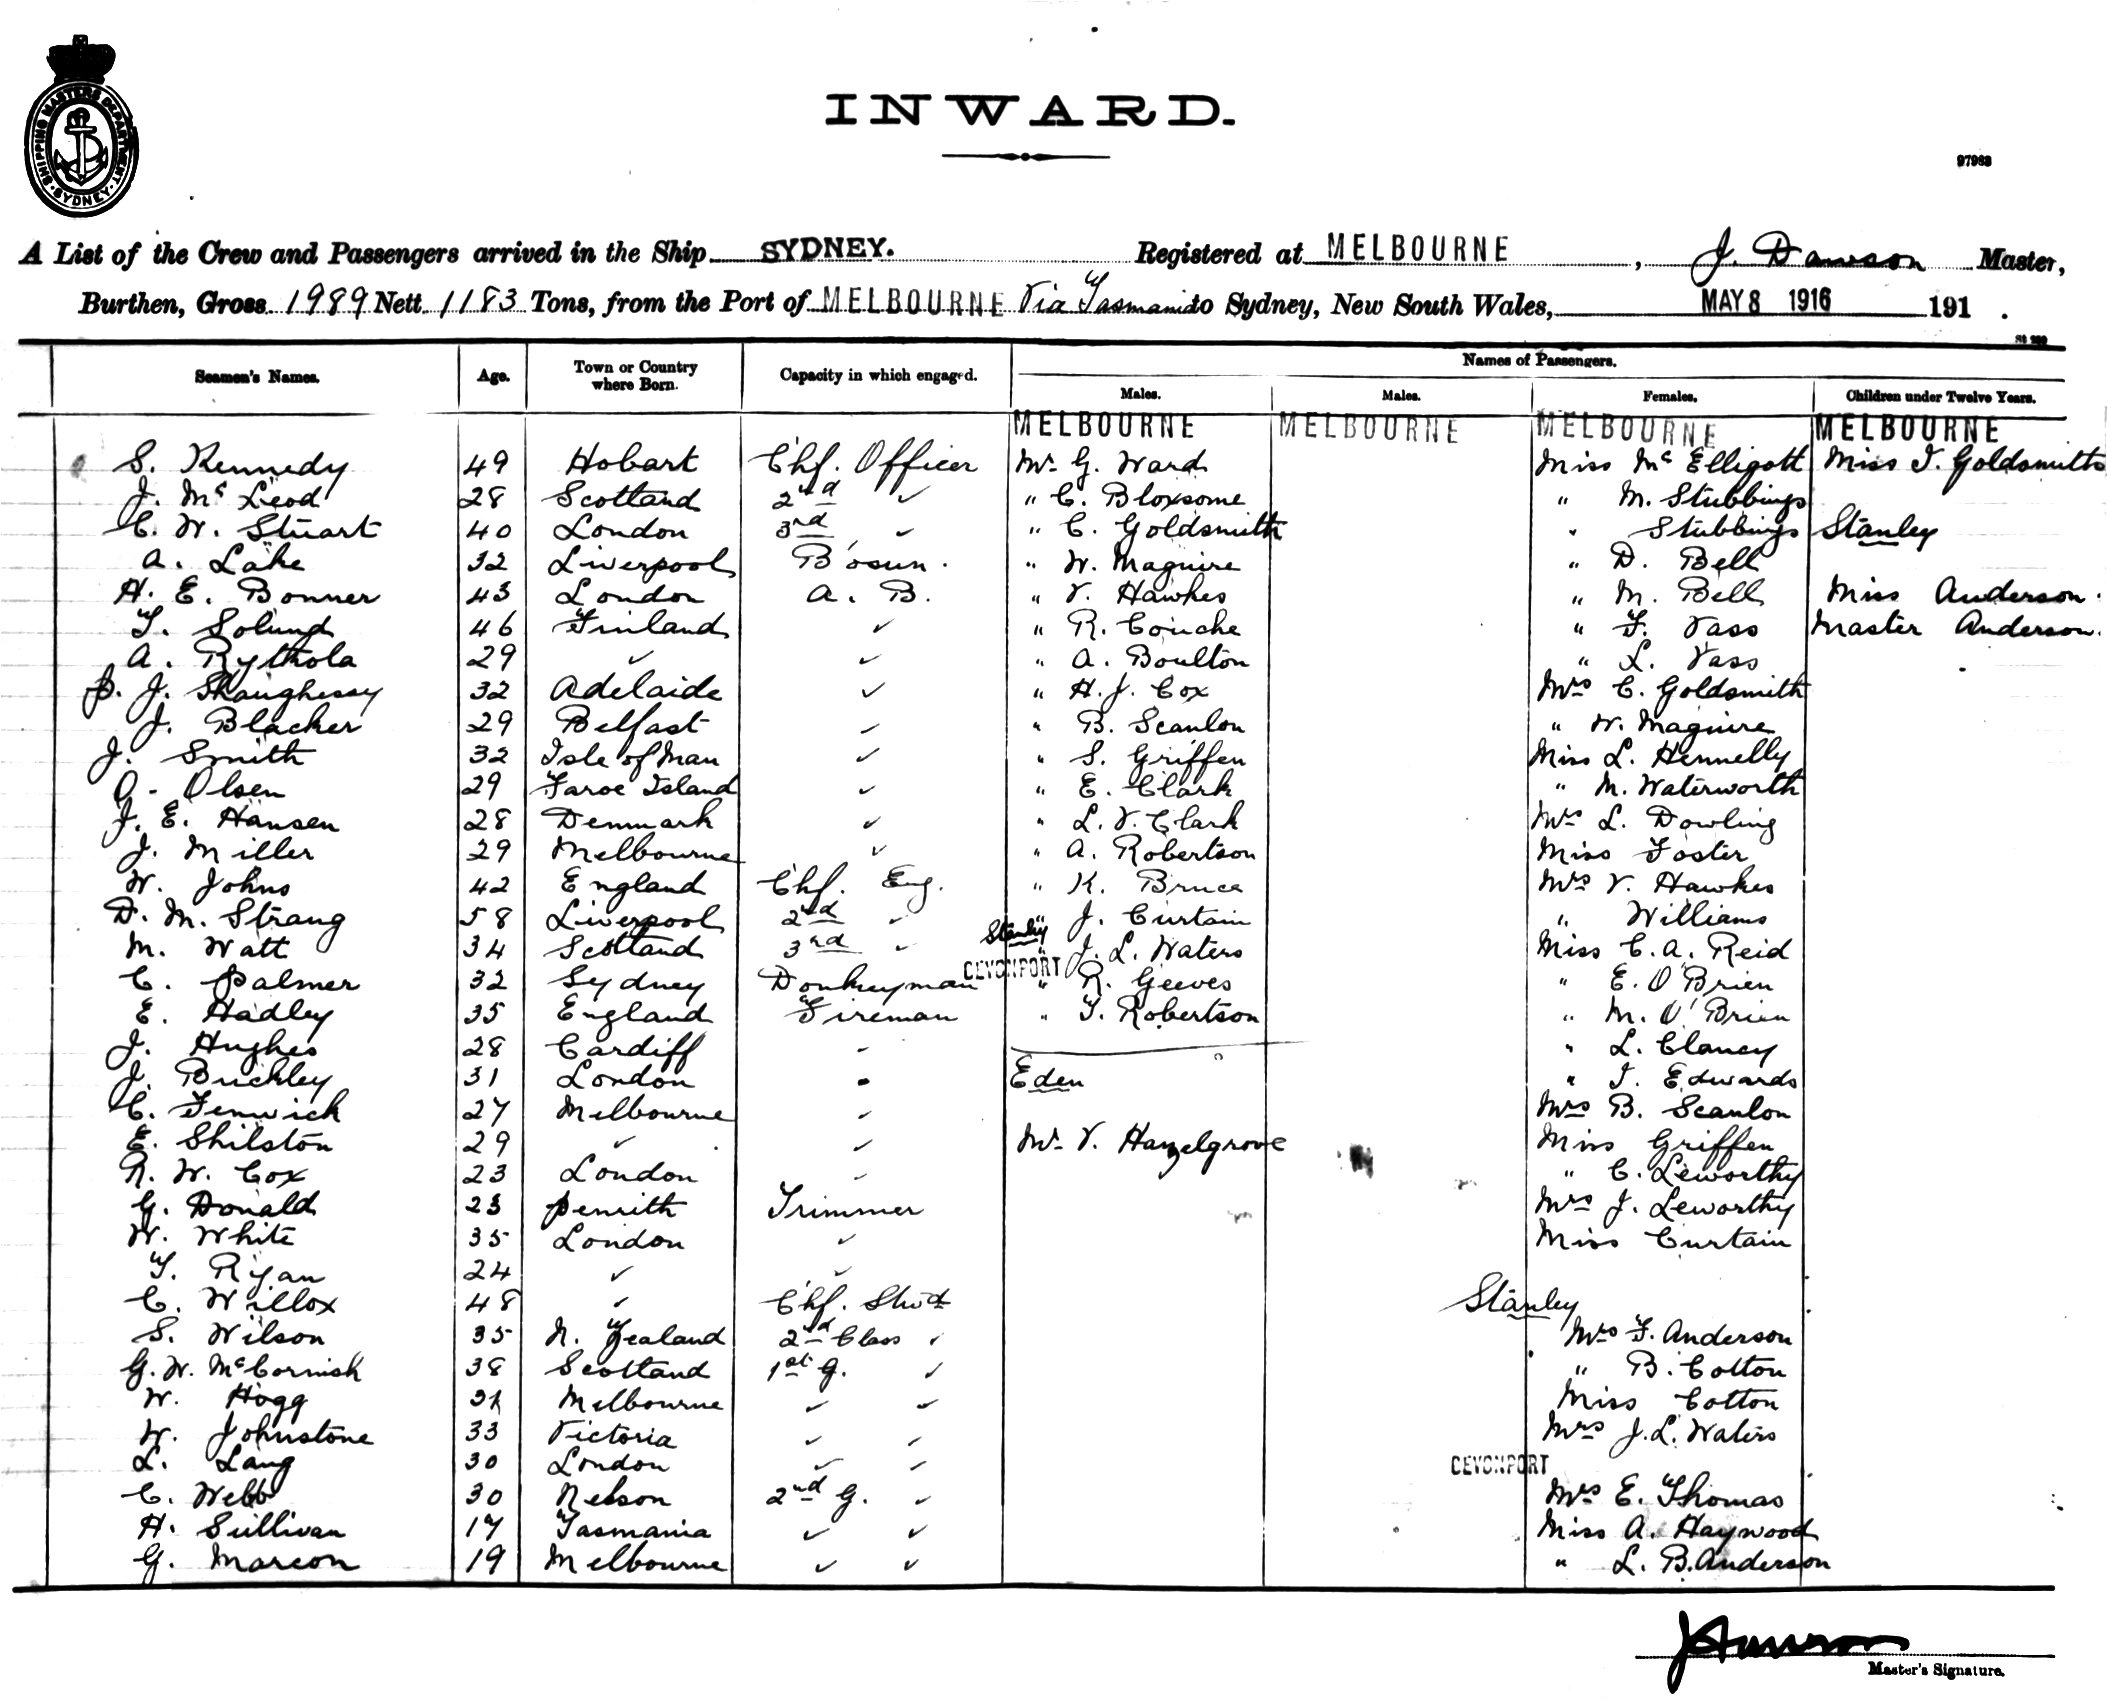 SHIPPING MASTERS DEPARTMENT. SYDNEY
INWARD.
97963
A List of the Crew and Passengers arrived in the Ship SYDNEY. Registered at MELBOURNE, J. Dawson Master,
Burthen, Gross 1989 Nett 1183 Tons, from the Port of MELBOURNE Via Tasmania to Sydney, New South Wales, MAY 8 1916 191 .
Names of Passengers.
Seamen's Names. Age. Town or Country where Born. Capacity in which engaged. Males. Males. Females. Children under Twelve Years.
MELBOURNE MELBOURNE MELBOURNE MELBOURNE
S. Kennedy 49 Hobart Chf. Officer Mr G. Ward Miss McElligott Miss I. Goldsmith
J. McLeod 28 Scotland 2nd ✓ " C. Bloxsome " M. Stubbings
C. W. Stuart 40 London 3rd ✓ " C. Goldsmith " Stubbings Stanley
A. Lake 32 Liverpool Bosun. " W. Maguire " D. Bell
H. E. Bonner 43 London A. B. " V. Hawkes " M. Bell Miss Anderson.
T. Solund 46 Finland ✓ " R. Couche " F. Vass Master Anderson.
A. Rythola 29 ✓ ✓ " A. Boulton " L. Vass
P. J. Shaughessy 32 Adelaide ✓ " H. J. Cox Mrs C. Goldsmith
J. Blacker 29 Belfast ✓ " B. Scanlon " W. Maguire
J. Smith 32 Isle of Man ✓ " S. Griffen Miss L. Hennelly
O. Olsen 29 Faroe Island ✓ " E. Clark " M. Waterworth
J. E. Hansen 28 Denmark ✓ " L. V. Clark Mrs L. Dowling
J. Miller 29 Melbourne ✓ " A. Robertson Miss Foster
W. Johns 42 England Chf. Eng. " K. Bruce Mrs V. Hawkes
D. M. Strang 58 Liverpool 2nd ✓ " J. Curtain " Williams
M. Watt 34 Scotland 3rd ✓ Stanley " J. L. Waters Miss C. A. Reid
C. Palmer 32 Sydney Donkeyman DEVONPORT " R. Geeves " E. O'Brien
E. Hadley 35 England Fireman " T. Robertson " M. O'Brien
J. Hughes 28 Cardiff " " L. Clancy
J. Buckley 31 London " Eden " I. Edwards
C. Fenwick 27 Melbourne ✓ Mrs B. Scanlon
E. Shilston 29 ✓ ✓ Mr V. Hazelgrove Miss Griffen
R. W. Cox 23 London ✓ " C. Leworthy
G. Donald 23 Penrith Trimmer Mrs J. Leworthy
W. White 35 London ✓ Miss Curtain
T. Ryan 24 ✓ ✓
C. Willox 48 ✓ Chf. Stwd Stanley
S. Wilson 35 N. Zealand 2nd Class ✓ Mrs F. Anderson
G. W. McCormish 38 Scotland 1st G. ✓ " B. Cotton
W. Hogg 31 Melbourne ✓ ✓ Miss Cotton
W. Johnstone 33 Victoria ✓ ✓ Mrs J. L. Waters
L. Lang 30 London ✓ ✓ DEVONPORT
C. Webb 30 Nelson 2nd G. ✓ Mrs E. Thomas
H. Sullivan 17 Tasmania ✓ ✓ Miss A. Haywood
G. Marcon 19 Melbourne ✓ ✓ " L. B. Anderson
J Dawson
Master's Signature.